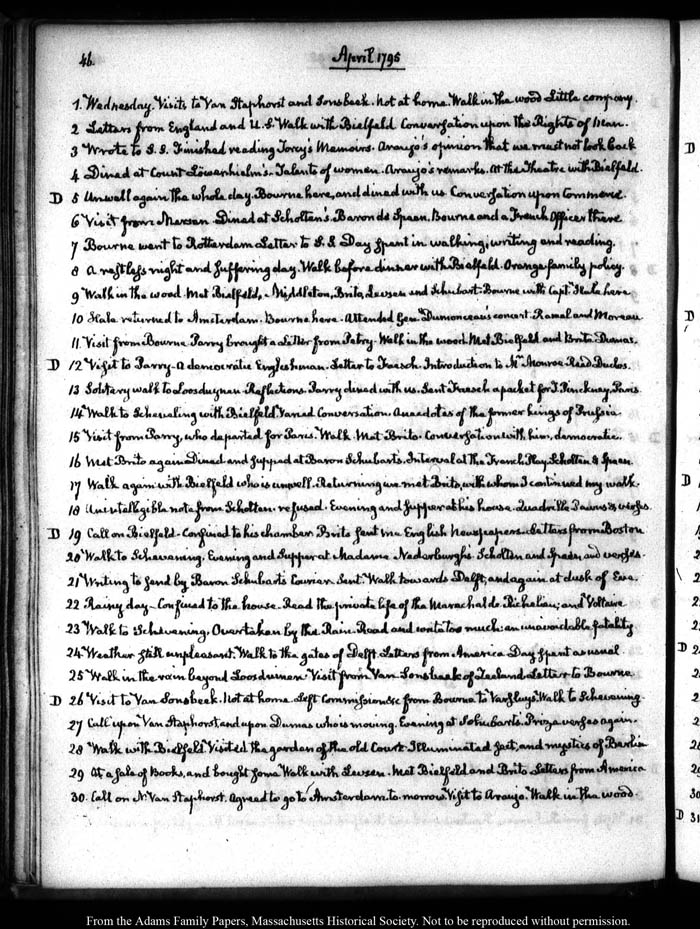 46.
April 1795
1. Wednesday. Visits to Van Staphorst and Sonsbeek. not at home. Walk in the wood Little company.
2 Letters from England and U.S. Walk with Bielfeld Conversation upon the Rights of Man.
3 Wrote to S. S. Finished reading Torcy's Memoirs. Araujo's opinion that we must not look back
4 Dined at Count Löwenhielm's. Talents of women. Araujo's remarks. At the Theatre with Bielfeld.
D 5 Unwell again the whole day. Bourne here, and dined with us Conversation upon Commerce.
6 Visit from Dined at Scholten's. Baron de Spaen, Bourne and a French Officer there
7 Bourne went to Rotterdam Letter to S. S Day spent in walking, writing and reading.
8 A restless night and suffering day. Walk before dinner with Bielfeld. Orange family policy.
9 Walk in the wood. Met Bielfeld, Middleton, Brito, Levsen and Schubart. Bourne with Capt. here
10 returned to Amsterdam. Bourne here. Attended Genl. Dumonceau's concert. Ramel and Moreau
11. Visit from Bourne, Parry brought a Letter from Petry. Walk in the wood Met Bielfeld and Brito Dumas.
D 12 Visit to Parry. A democratic Englishman. Letter to Fraesch. Introduction to Mr. Monroe. Read Duclos.
13 Solitary walk to Loosduynen Reflections. Parry dined with us. Sent Fraesch a packet for T. Pinckney, Paris
14 Walk to Scheveling with Bielfeld Varied Conversation. Anecdotes of the former kings of Prussia
15 Visit from Parry, who departed for Paris. Walk. Met Brito. Conversation with him, democratic.
16 Met Brito again Dined and supped at Baron Schubarts. Interval at the French Play. Scholten & Spaen.
17 Walk again with Bielfeld who is unwell. Returning we met Brito, with whom I continued my walk.
18 Unintelligible note from Scholten. refused. Evening and supper at his house. Quadrille Dames & verses.
D 19 Call on Bielfeld. Confined to his chamber Brito sent me English newspapers. Letters from Boston
20 Walk to Schevening. Evening and Supper at Madame Nederburgh's. Scholten and Spaen and verses.
21 Writing to send by Baron Schubart's Courier. Sent. Walk towards Delft, and again at dusk of Eve.
22 Rainy day. Confined to the house. Read the private life of the Marechal de Richelieu; and Voltaire
23 Walk to Schevening. Overtaken by the Rain. Read and wrote too much: an unavoidable fatality
24 Weather still unpleasant. Walk to the gates of Delft. Letters from America Day spent as usual.
25 Walk in the rain beyond Loosduinen Visit from Van Sonsbeek of Zeeland Letter to Bourne
D 26 Visit to Van Sonsbeek. Not at home. Left Commissions &c from Bourne to Walk to Schevening.
27 Call upon Van Staphorst and upon Dumas who is moving. Evening at Schubarts. Prize verses again.
28 Walk with Bielfeld Visited the garden of the old Court. Illuminated sect, and mystics of Berlin
29 At a sale of books, and bought some Walk with Levsen. Met Bielfeld and Brito Letters from America
30. Call on N. Van Staphorst. Agreed to go to Amsterdam to-morrow. Visit to Araujo. Walk in the wood.
D
D
D
D 31
From the Adams Family Papers, Massachusetts Historical Society. Not to be reproduced without permission.